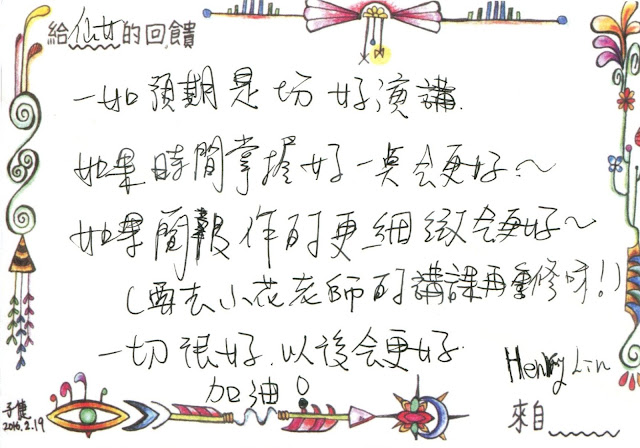 給仙女的回饋
一如預期是場好演講.
如果時間掌握好一點会更好~
如果簡報作的更細緻会更好~
(要去小花老師的講課再重修呀!)
一切很好.以後会更好.
加油!
Henry Lin
來自
2016.2.19